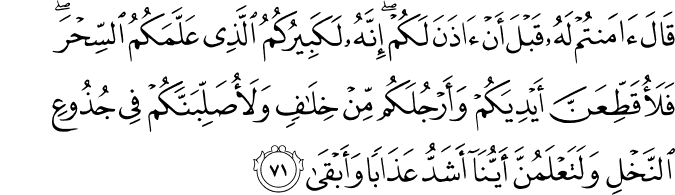 قَالَ ءَامَنتُمْ لَهُۥ قَبْلَ أَنْ ءَاذَنَ لَكُمْ ۖ إِنَّهُۥ لَكَبِيرُكُمُ ٱلَّذِى عَلَّمَكُمُ ٱلسِّحْرَ ۖ
فَلَأُقَطِّعَنَّ أَيْدِيَكُمْ وَأَرْجُلَكُم مِّنْ خِلَـٰفٍ وَلَأُصَلِّبَنَّكُمْ فِى جُذُوعِ
ٱلنَّخْلِ وَلَتَعْلَمُنَّ أَيُّنَآ أَشَدُّ عَذَابًا وَأَبْقَىٰ ٧١